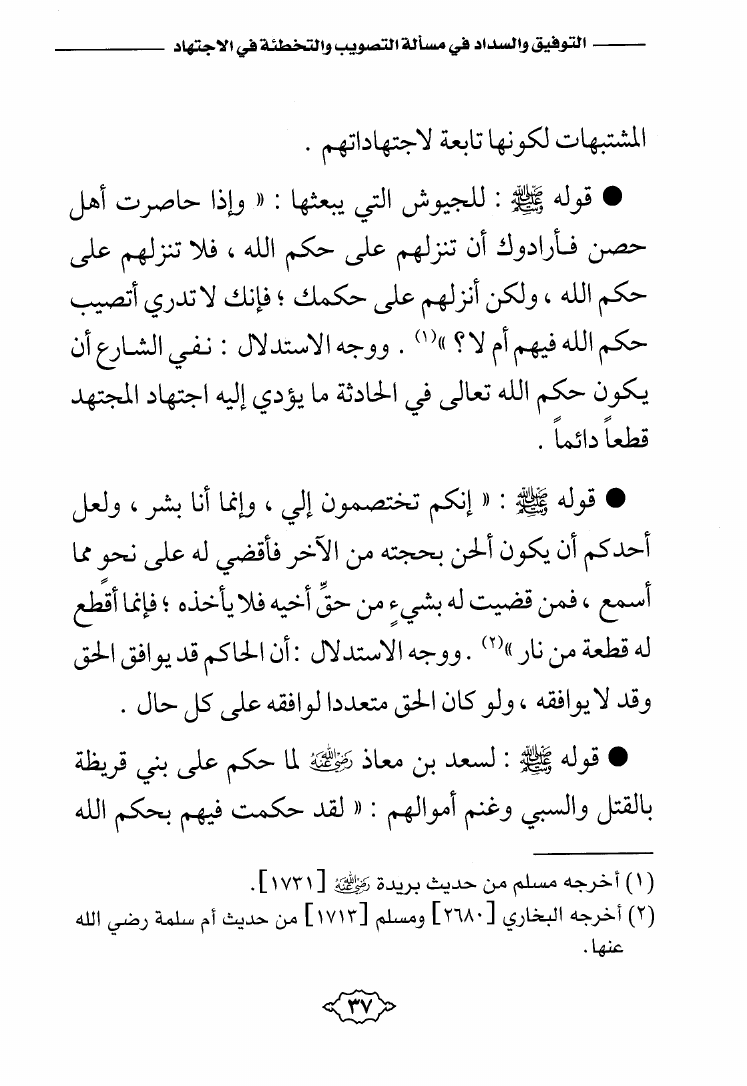 التوفيق والسداد في مسألة التصويب والتخطئة في الاجتهاد
المشتبهات لكونها تابعة لاجتهاداتهم .
● قوله ﷺ : للجيوش التي يبعثها : « وإذا حاصرت أهل
حصن فأرادوك أن تنزلهم على حكم الله ، فلا تنزلهم على
حكم الله ، ولكن أنزلهم على حكمك ؛ فإنك لا تدري أتصيب
حكم الله فيهم أم لا؟ »(١) . ووجه الاستدلال : نفي الشارع أن
يكون حكم الله تعالى في الحادثة ما يؤدي إليه اجتهاد المجتهد
قطعاً دائماً .
● قوله ﷺ : « إنكم تختصمون إلي ، وإنما أنا بشر ، ولعل
أحدكم أن يكون ألحن بحجته من الآخر فأقضي له على نحوٍ مما
أسمع ، فمن قضيت له بشيءٍ من حقِّ أخيه فلا يأخذه ؛ فإنما أقطع
له قطعة من نار »(٢) . ووجه الاستدلال : أن الحاكم قد يوافق الحق
وقد لا يوافقه ، ولو كان الحق متعددا لوافقه على كل حال .
● قوله ﷺ : لسعد بن معاذ رضي الله عنه لما حكم على بني قريظة
بالقتل والسبي وغنم أموالهم : « لقد حكمت فيهم بحكم الله
(١) أخرجه مسلم من حديث بريدة رضي الله عنه [١٧٣١].
(٢) أخرجه البخاري [٢٦٨٠] ومسلم [١٧١٣] من حديث أم سلمة رضي الله
عنها.
٣٧